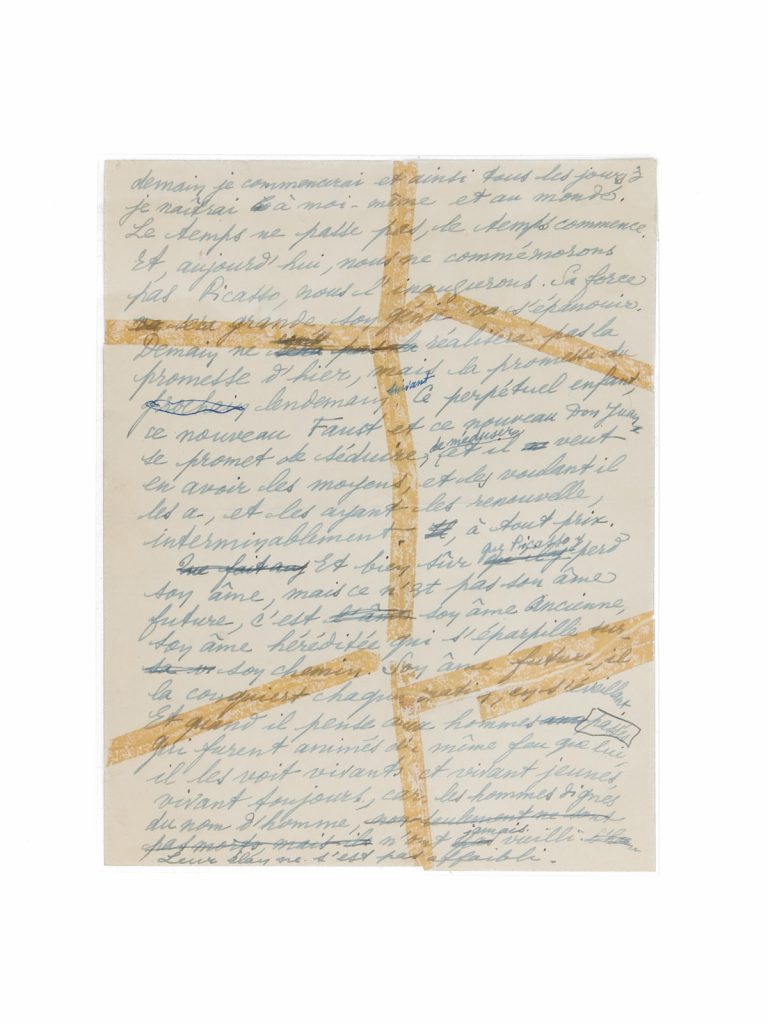 demain je commencerai et ainsi tous les jours 3
je naîtrai à moi-même et au monde.
Le temps ne passe pas, le temps commence.
Et, aujourd'hui, nous ne commémorons
pas Picasso, nous l'inaugurons. Sa force
va sera grande, son génie va s'épanouir.
Demain ne réalisera pas la
promesse d'hier, mais la promesse du
prochain lendemain suivant. Ce perpétuel enfant,
ce nouveau Faust et ce nouveau Don Juan
se promet de séduire, de méduser, et il veut
en avoir les moyens, et les voulant il
les a, et les ayant les renouvelle,
interminablement, à tout prix.
Et bien sûr que Picasso perd
son âme, mais ce n'est pas son âme
future, c'est l'âme son âme ancienne,
son âme héréditée qui s'éparpille sur
sa vi son chemin. Son âme future, il
la conquiert chaque matin, en s'éveillant
Et quand il pense aux hommes passés
qui furent animés du même feu que lui
il les voit vivants et vivant jeunes,
vivant toujours, car les hommes dignes
du nom d'homme, non seulement ne sont
pas morts, mais ils n'ont jamais vieilli
Leur élan ne s'est pas affaibli.